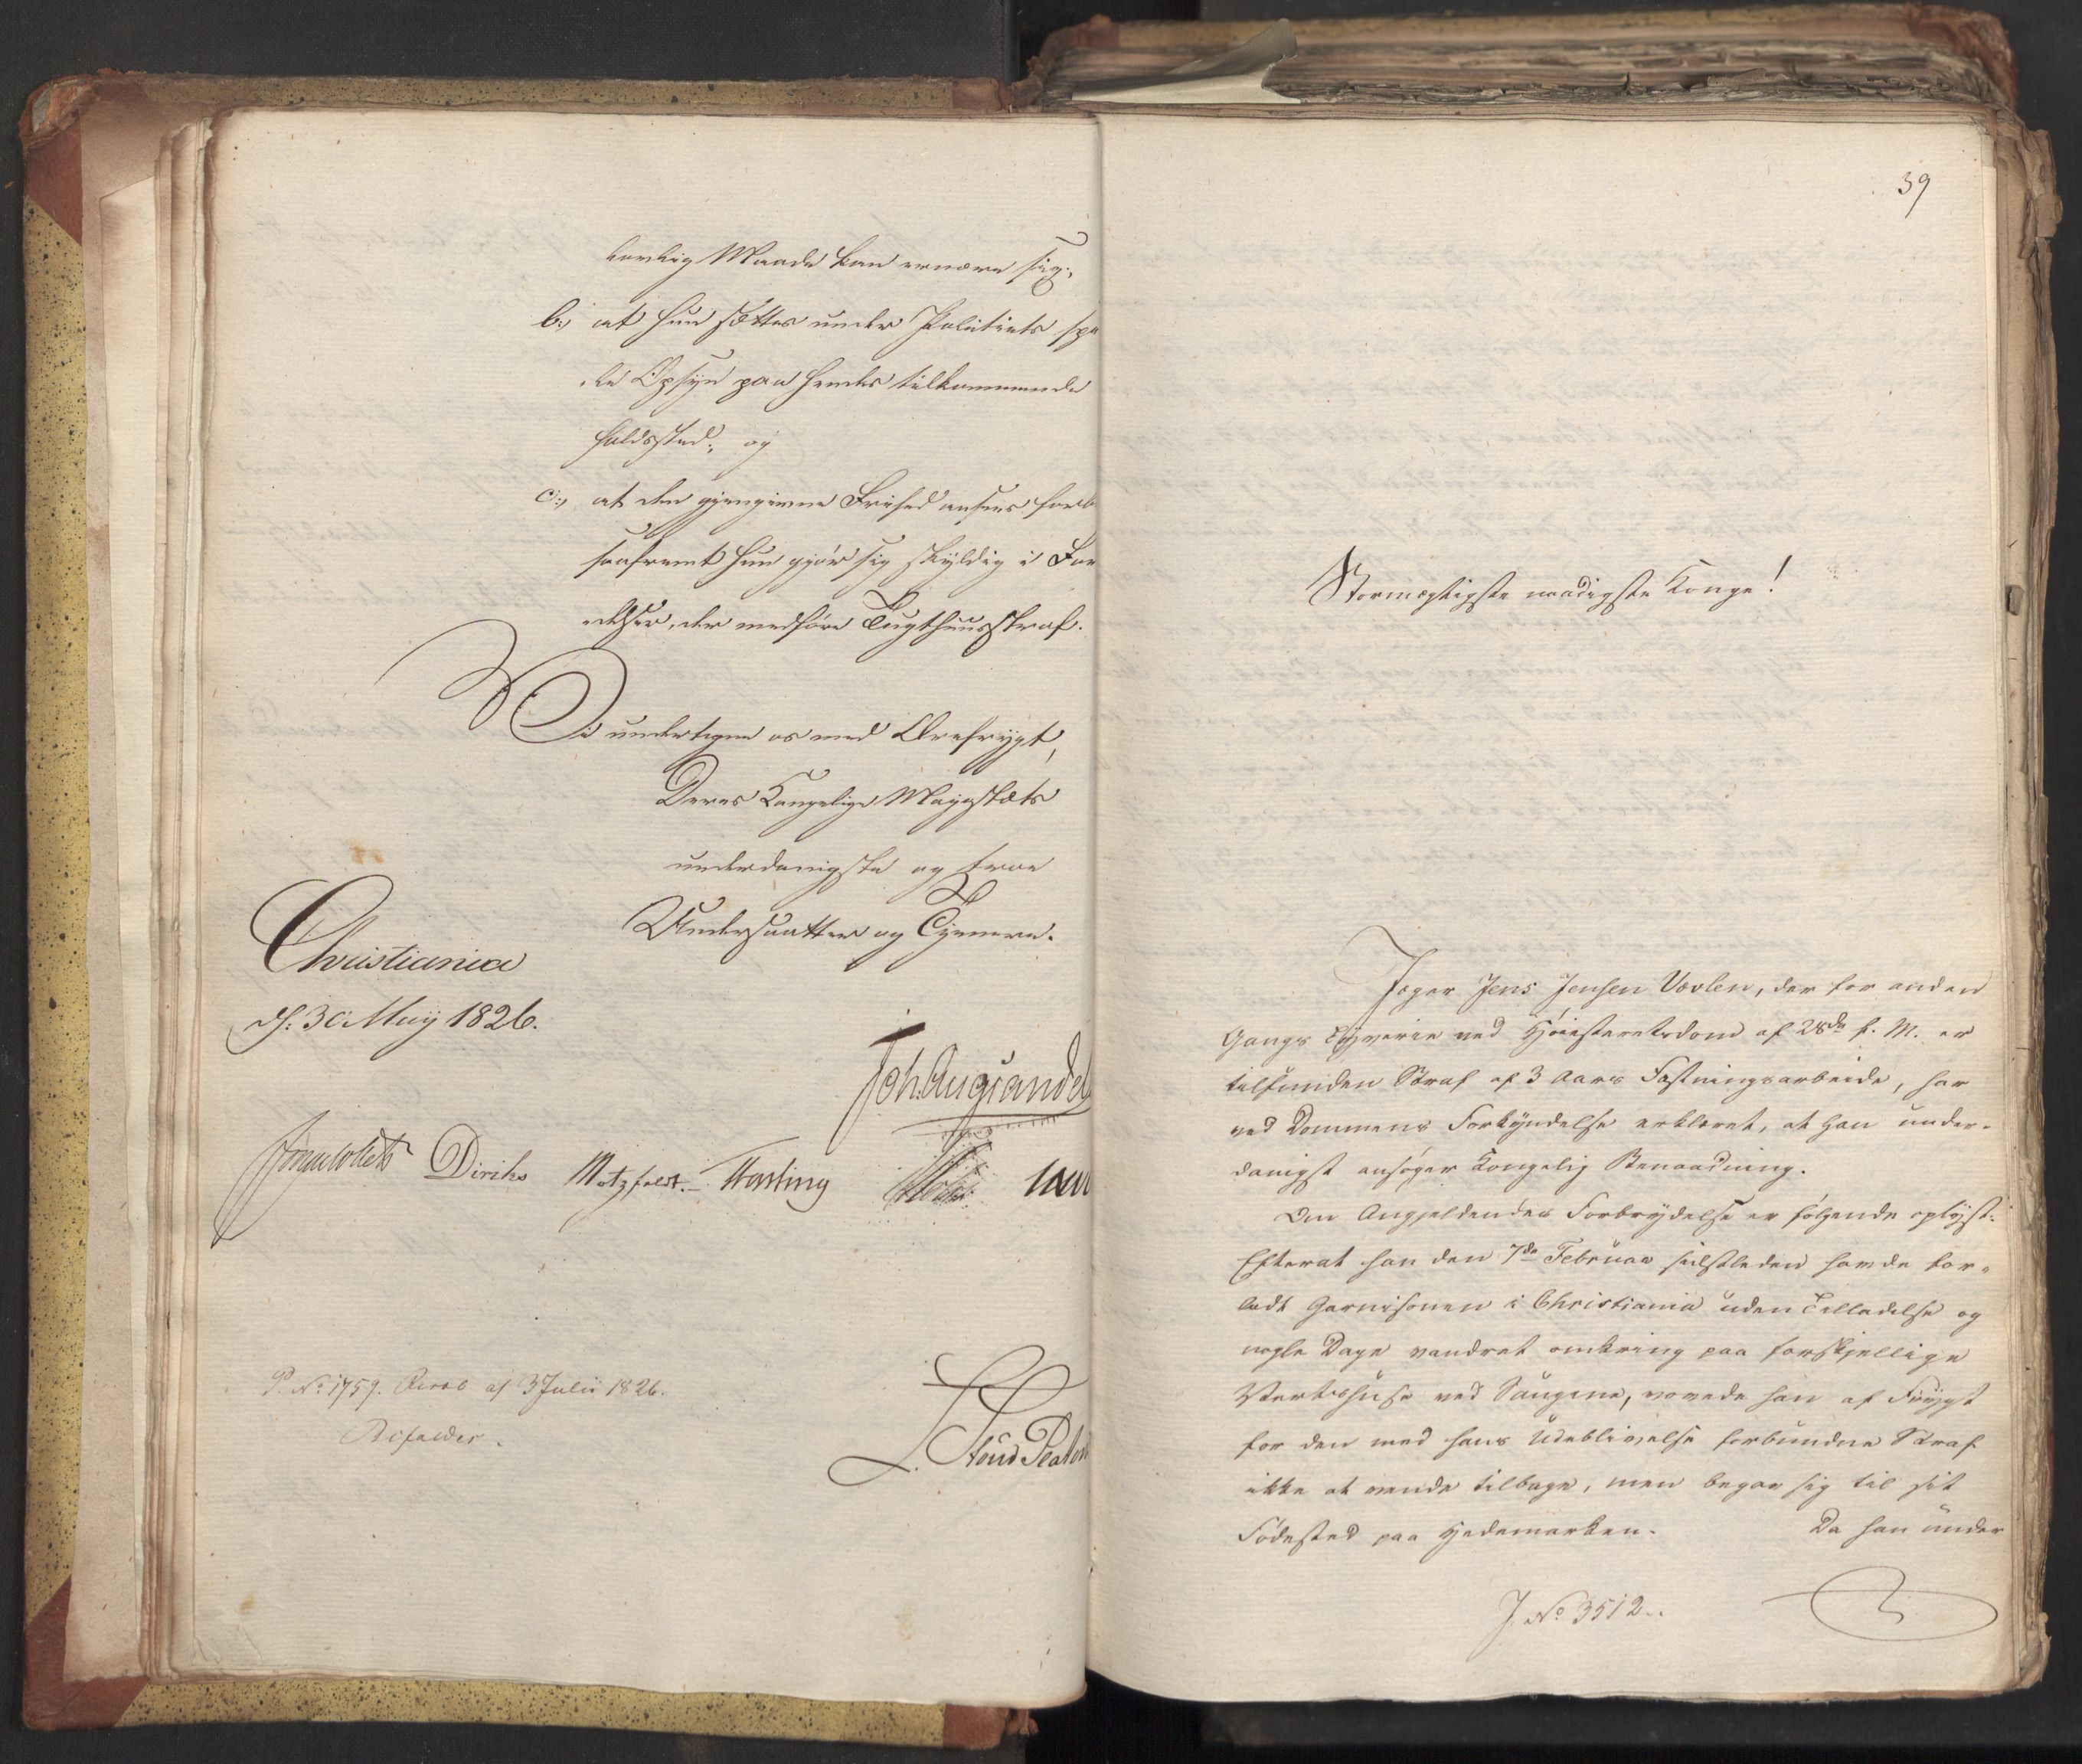 lovlig Maade kan ernære sig;
b:, at hun sættes under Politiets spe
le Opsyn paa hendes tilkommende
holdssted; og
c:, at den gjengivne Frihed ansees forb
saafremt hun gjør sig skyldig i For
delser, der medføre Tugthuusstraf.
Vi undertegne os med Ærefrygt,
Deres Kongelige Majestæts
underdanigste og troe
Undersaatter og Tjenere.
Christiania
d: 30 May 1826.
Joh. Aug: Sandel
Diriks Motzfeldt. Fasting
P. No 1759. Resol af 3 Julii 1826.
Bifaldes.
39
Stormægtigste naadigste Konge!
Jæger Jens Jensen Varlen, der for anden
Gangs Tyverie ved Høiesteretsdom af 28de f. M. er
tilfunden Straf af 3 Aars Fæstningsarbeide, har
ved Dommens Forkyndelse erklæret, at han under-
danigst ansøger Kongelig Benaadning.
Om Angjeldendes Forbrydelse er følgende oplyst:
Efterat han den 7de Februar sidstleden havde for-
ladt Garnisonen i Christiania uden Tilladelse og
nogle Dage vandret omkring paa forskjellige
Vertshuse ved Saugene, vovede han af Frygt
for den med hans Udeblivelse forbundne Straf
ikke at vende tilbage, men begav sig til sit
Fødested paa Hedemarken. Da han under
J. No 3512.